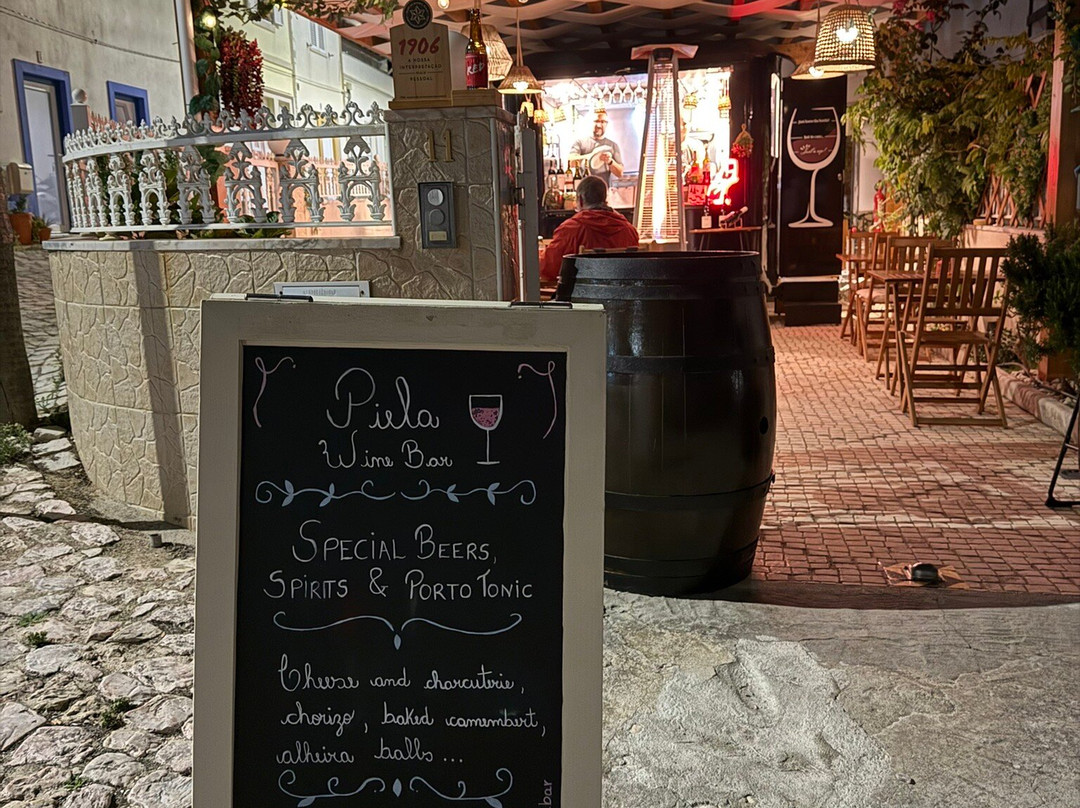 1906
A NOSSA
INTERPRETAÇÃO
MAIS
PESSOAL
11
Piela
Wine Bar
SPECIAL BEERS,
SPIRITS & PORTO TONIC
Cheese and charcuterie,
chorizo, baked camembert,
alheira balls...
bar